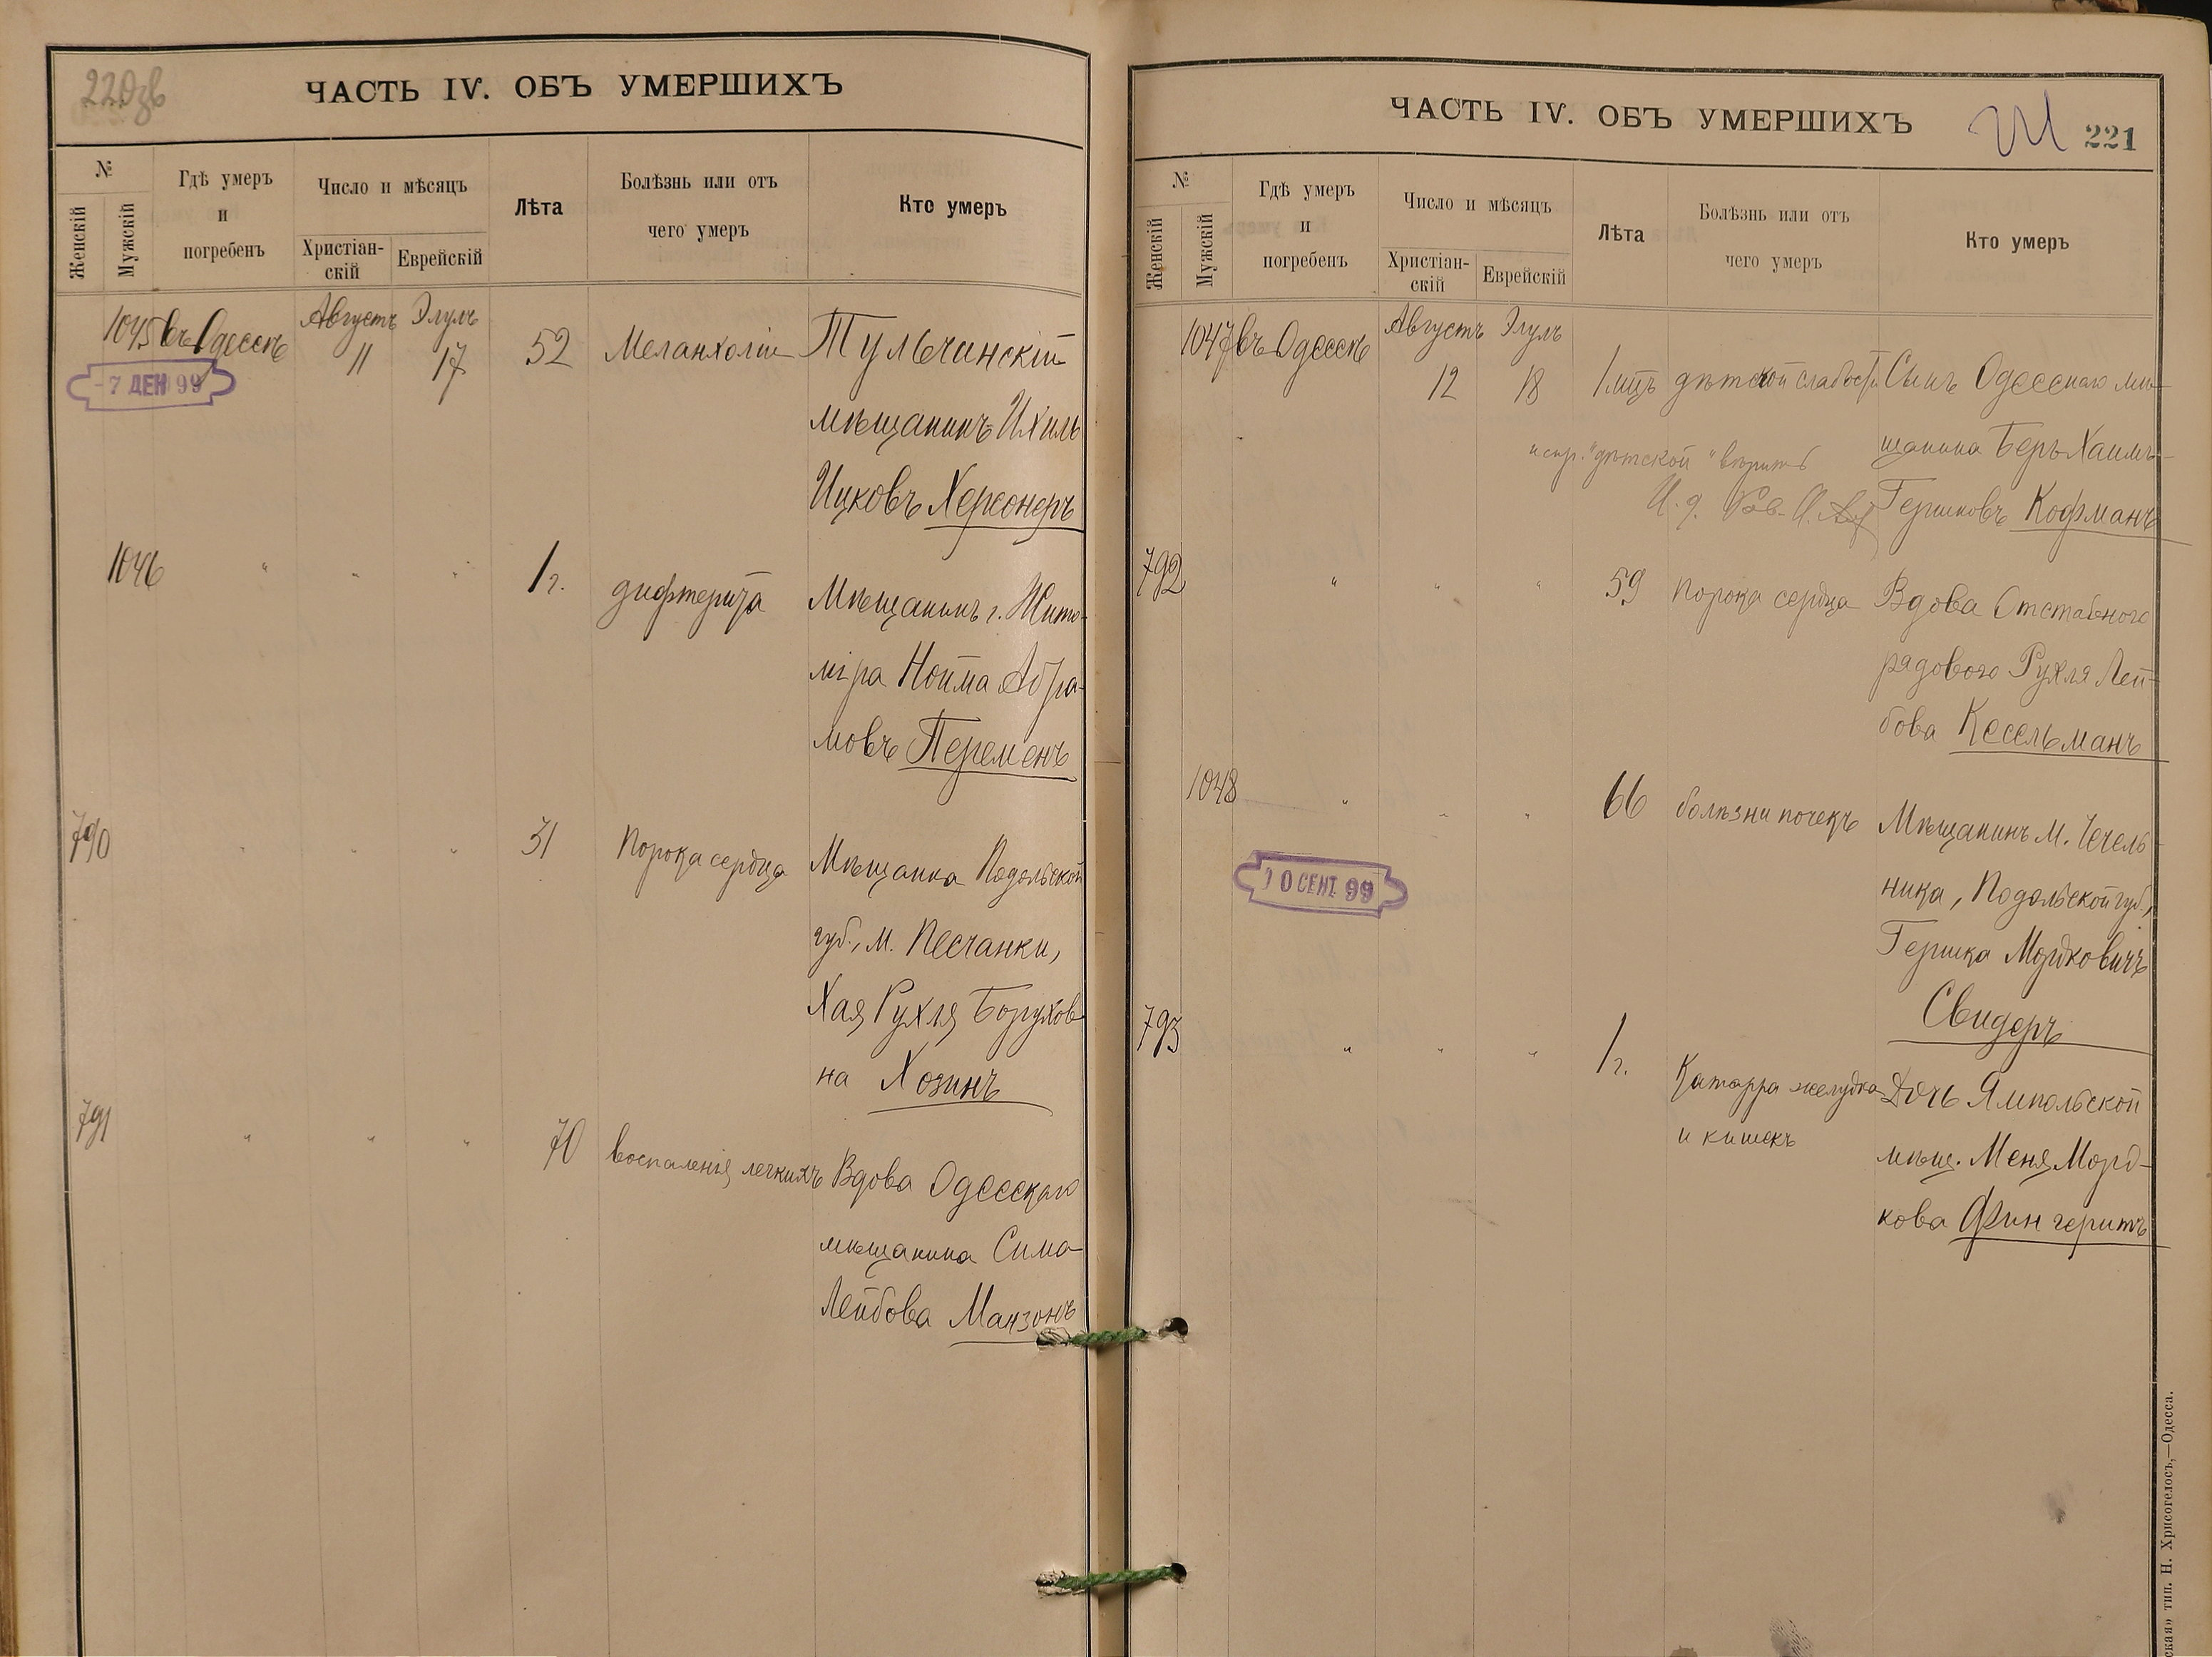 220об
ЧАСТЬ IV. ОБЪ УМЕРШИХЪ
№
Женскій
Мужскій
Гдѣ умеръ
и
погребенъ
Число и мѣсяцъ
Христіан-
скій
Еврейскій
Лѣта
Болѣзнь или отъ
чего умеръ
Кто умеръ
1045 въ Одессѣ Августъ 11 Элулъ 17 52 Меланхоліи Тульчинскій
мѣщанинъ Ихиль
Ицковъ Херсонеръ
7 ДЕН 99
1046 " " " 1 г. дифтерита Мѣщанинъ г. Жито-
міра Нойма Абра-
мовъ Перемень
790 " " " 31 Порока сердца Мѣщанка Подольской
губ., м. Песчанки,
Хая Рухля Борухов-
на Хозинъ
791 " " " 70 воспаленія легкихъ Вдова Одесскаго
мѣщанина Сима
Лейбова Манзонъ
ЧАСТЬ IV. ОБЪ УМЕРШИХЪ
221
№
Женскій
Мужскій
Гдѣ умеръ
и
погребенъ
Число и мѣсяцъ
Христіан-
скій
Еврейскій
Лѣта
Болѣзнь или отъ
чего умеръ
Кто умеръ
1047 въ Одессѣ Августъ 12 Элулъ 18 1 мцъ дѣтской слабости Сынъ Одесскаго мѣ-
щанина Беръ Хаимъ
Гершковъ Кофманъ
испр. "дѣтской" вѣрить
И. д.
792 " " " 59 Порока сердца Вдова Отставного
рядового Рухля Лей-
бова Кесельманъ
1048 " " " 66 болѣзни почекъ Мѣщанинъ м. Чечель-
ника, Подольской губ.,
Гершка Мордковичъ
Свидеръ
10 СЕНТ. 99
793 " " " 1 г. Катарра желудка Дочь Ямпольской
и кишекъ мѣщ. Меня Морд-
кова Фингеритъ
ская» тип. Н. Хрисогелосъ,—Одесса.